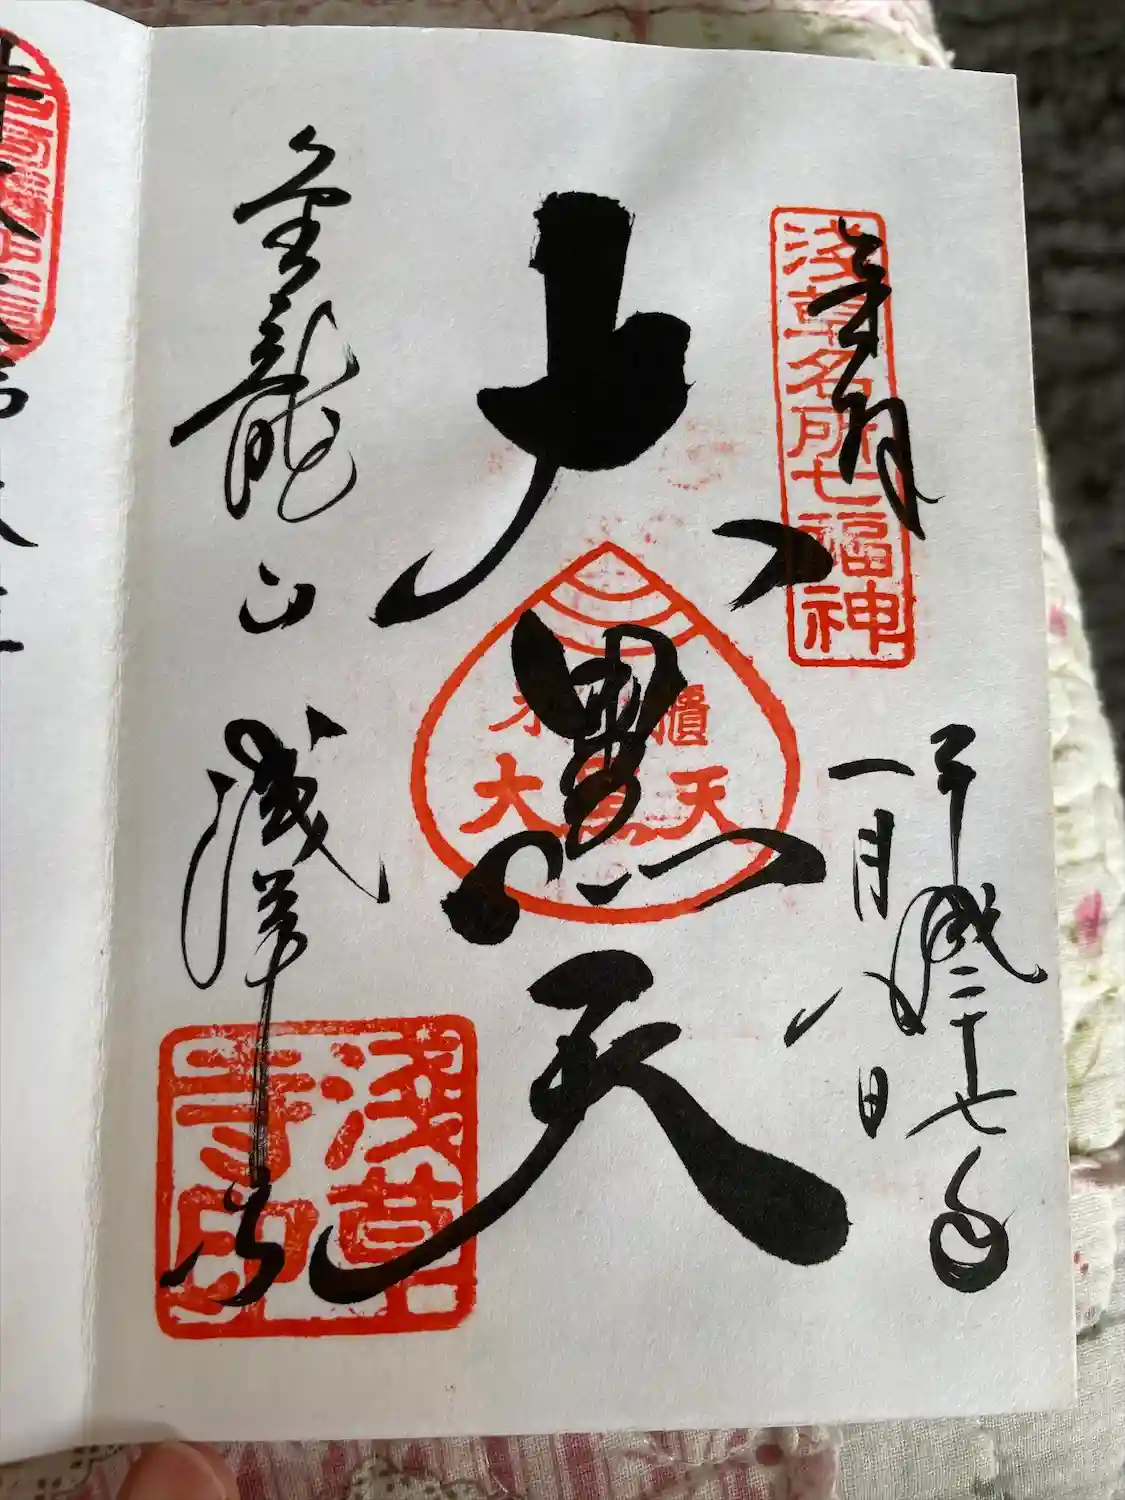 奉拝
浅草名所七福神
平成二十七年
一月八日
大黒天
米櫃
大黒天
金龍山
浅草寺
浅草
寺印